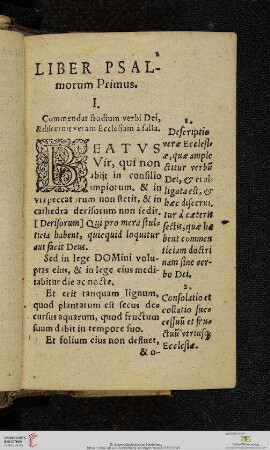 LIBER PSAL-
morum Primus.
I.
Commendat studium verbi Dei,
& discernit veram Ecclesiam a falsa.
BEATVS
Vir, qui non
abijt in consilio
impiorum, & in
via peccatorum non stetit, & in
cathedra derisorum non sedit.
[Derisorum] Qui pro mera stul
titia habent, quicquid loquitur
aut facit Deus.
Sed in lege DOMini volu
ptas eius, & in lege eius medi
tabitur die ac nocte.
Et erit tanquam lignum,
quod plantatum est secus de
cursus aquarum, quod fructum
suum dabit in tempore suo.
Et folium eius non defluet,
& o-
1.
Descriptio
veræ Ecclesi
æ, quæ ample
ctitur verbū
Dei, & ei al
ligata est, &
hæc discerni
tur á cæteris
sectis, quæ ha
bent commen
ticiam doctri
nam sine ver
bo Dei.
2.
Consolatio et
costatio suc
cessuū et fru
ctuū vtriusq;
Ecclesiæ.
UNIVERSITÄTS-
BIBLIOTHEK
HEIDELBERG
© Universitätsbibliothek Heidelberg